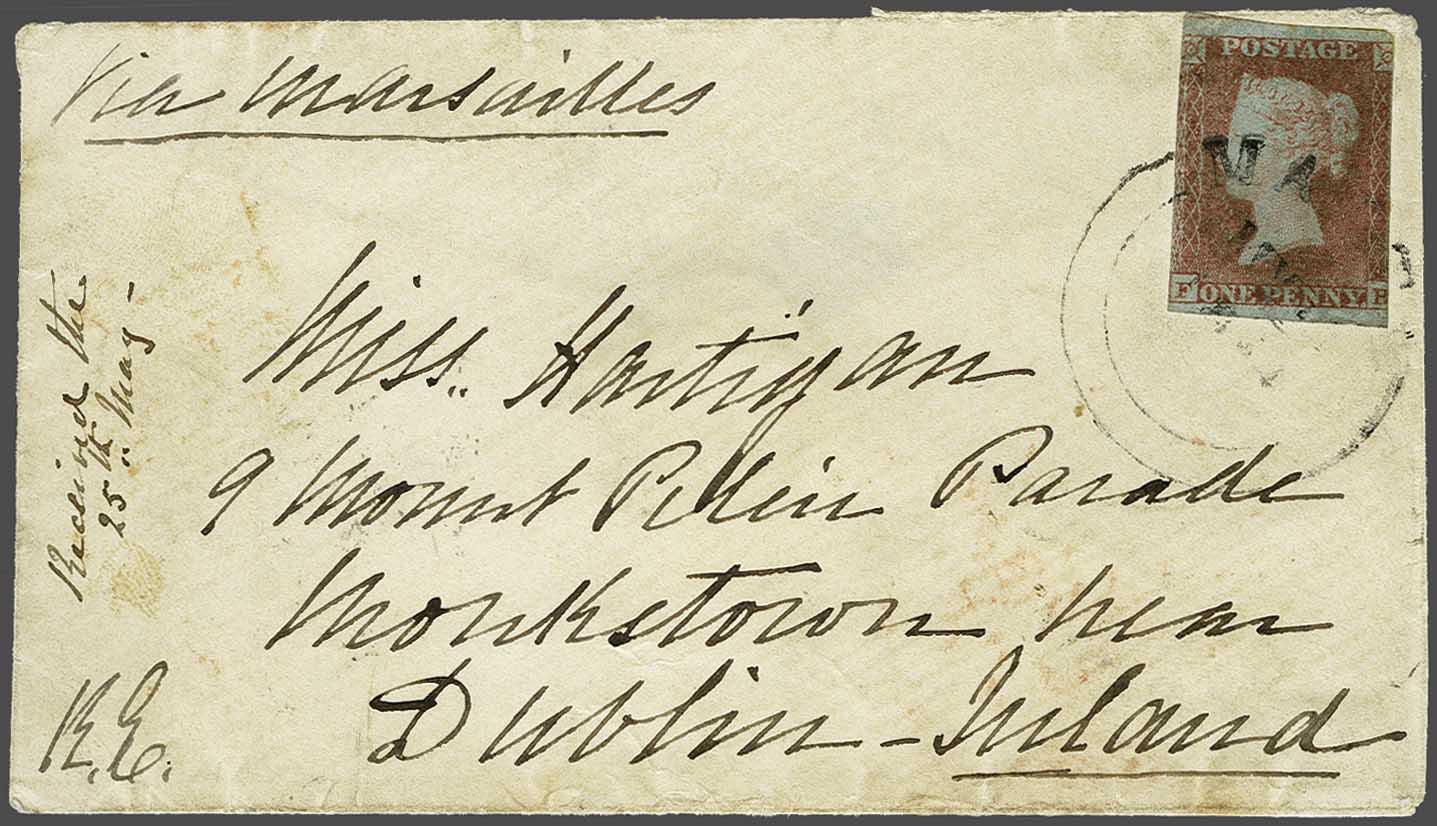 Via Marsailles
POSTAGE
MA
F ONE PENNY
Miss. Hartigan
9 Mount Parade
Monkstown near
Dublin - Ireland
Received the
25th May -
R.E.